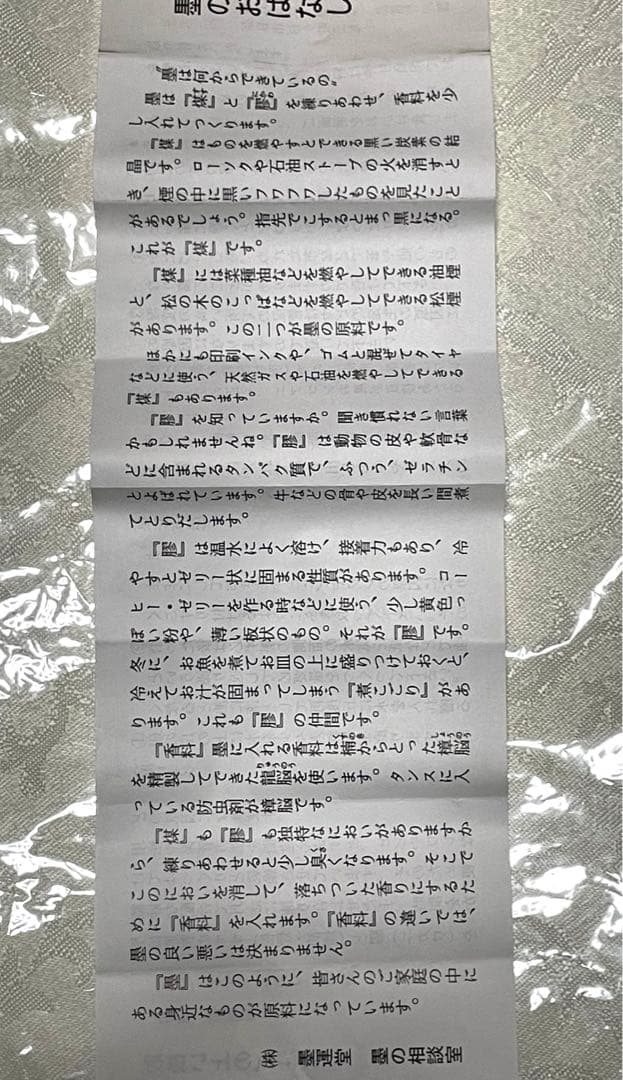 墨のおはなし
“墨は何からできているの”
墨は『煤』と『膠』を練りあわせ、香料を少
し入れてつくります。
『煤』はものを燃やすとできる黒い炭素の結
晶です。ローソクや石油ストーブの火を消すと
き、煙の中に黒いフワフワしたものを見たこと
があるでしょう。指先でこするとまっ黒になる。
これが『煤』です。
『煤』には菜種油などを燃やしてできる油煙
と、松の木のこっぱなどを燃やしてできる松煙
があります。この二つが墨の原料です。
ほかにも印刷インクや、ゴムと混ぜてタイヤ
などに使う、天然ガスや石油を燃やしてできる
『煤』もあります。
『膠』を知っていますか。聞き慣れない言葉
かもしれませんね。『膠』は動物の皮や軟骨な
どに含まれるタンパク質で、ふつう、ゼラチン
とよばれています。牛などの骨や皮を長い間煮
てとりだします。
『膠』は温水によく溶け、接着力もあり、冷
やすとゼリー状に固まる性質があります。コー
ヒー・ゼリーを作る時などに使う、少し黄色っ
ぽい粉や、薄い板状のもの。それが『膠』です。
冬に、お魚を煮てお皿の上に盛りつけておくと、
冷えてお汁が固まってしまう『煮こごり』があ
ります。これも『膠』の仲間です。
『香料』墨に入れる香料は楠からとった樟脳
を精製してできた龍脳を使います。タンスに入
っている防虫剤が樟脳です。
『煤』も『膠』も独特なにおいがありますか
ら、練りあわせると少し臭くなります。そこで
このにおいを消して、落ちついた香りにするた
めに『香料』を入れます。『香料』の違いでは、
墨の良い悪いは決まりません。
『墨』はこのように、皆さんのご家庭の中に
ある身近なものが原料になっています。
㈱ 墨運堂 墨の相談室